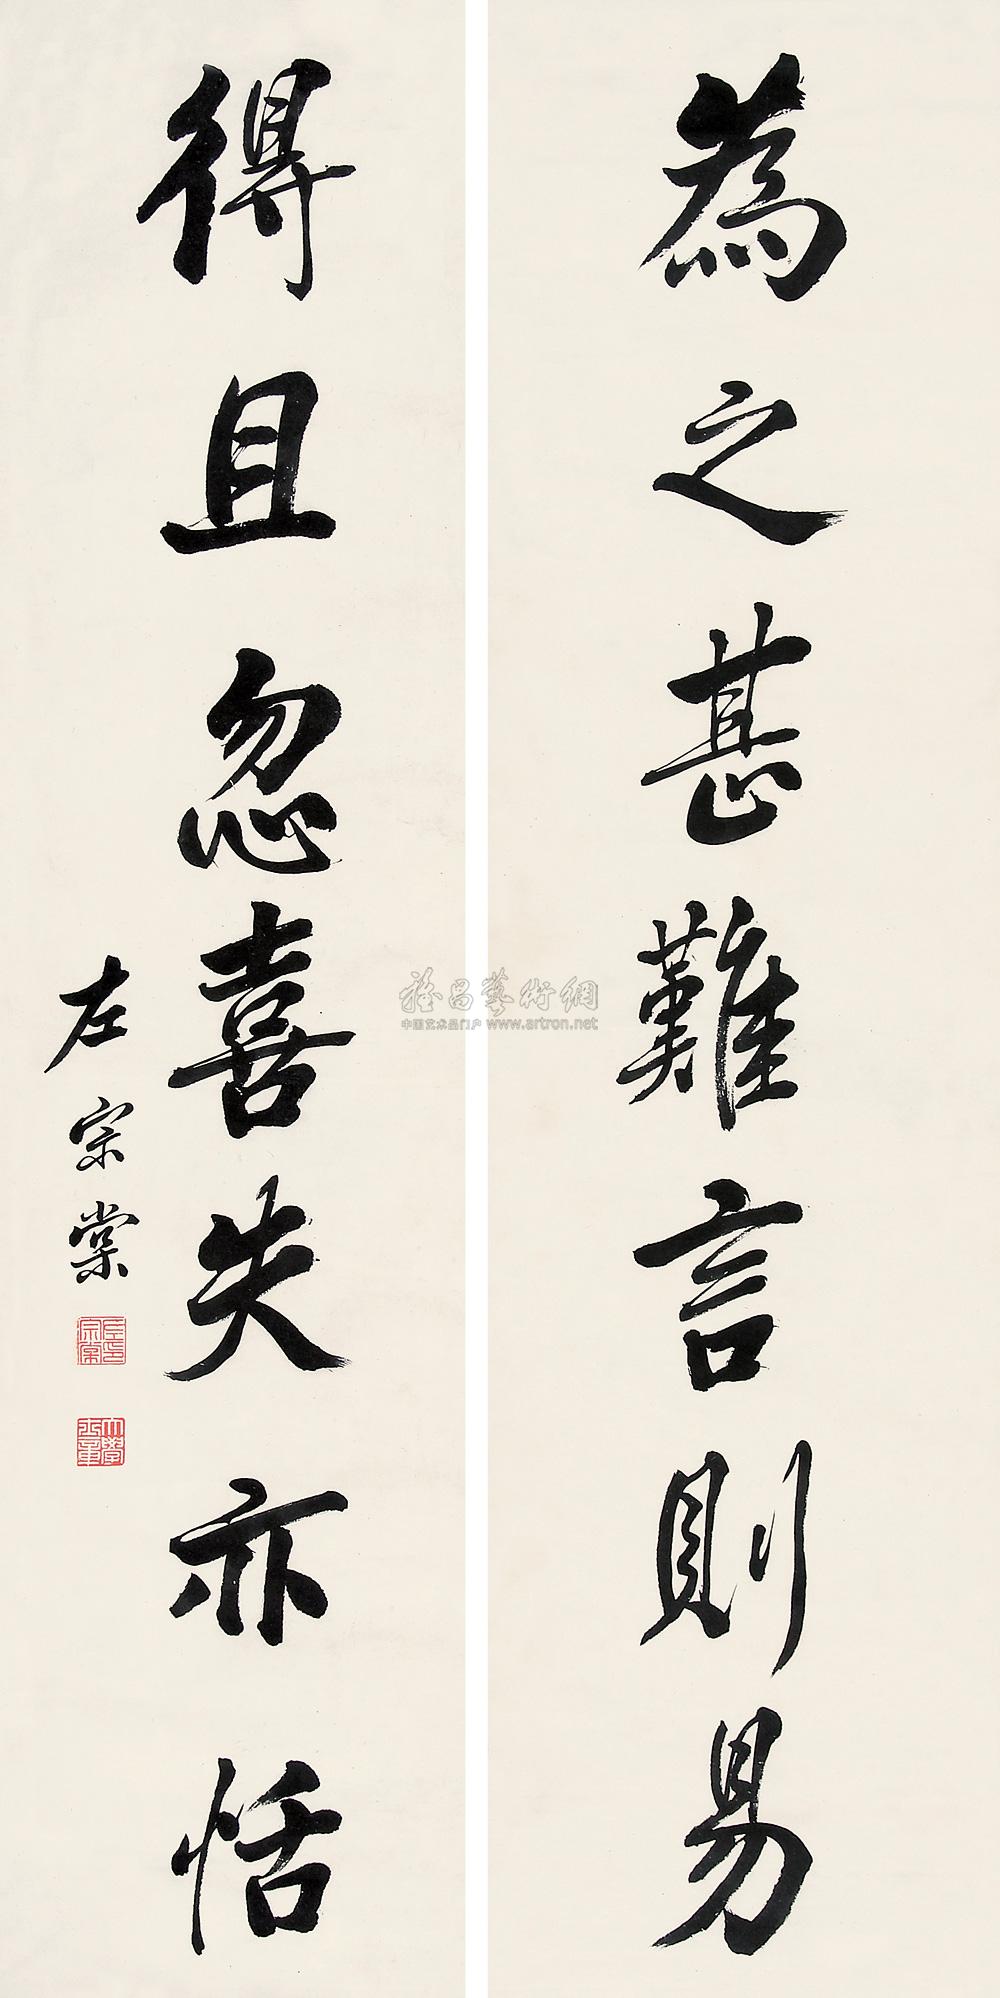 為之甚難言則易
得且忽喜失亦恬
左宗棠
雅昌藝術網
中国艺术品门户 www.artron.net